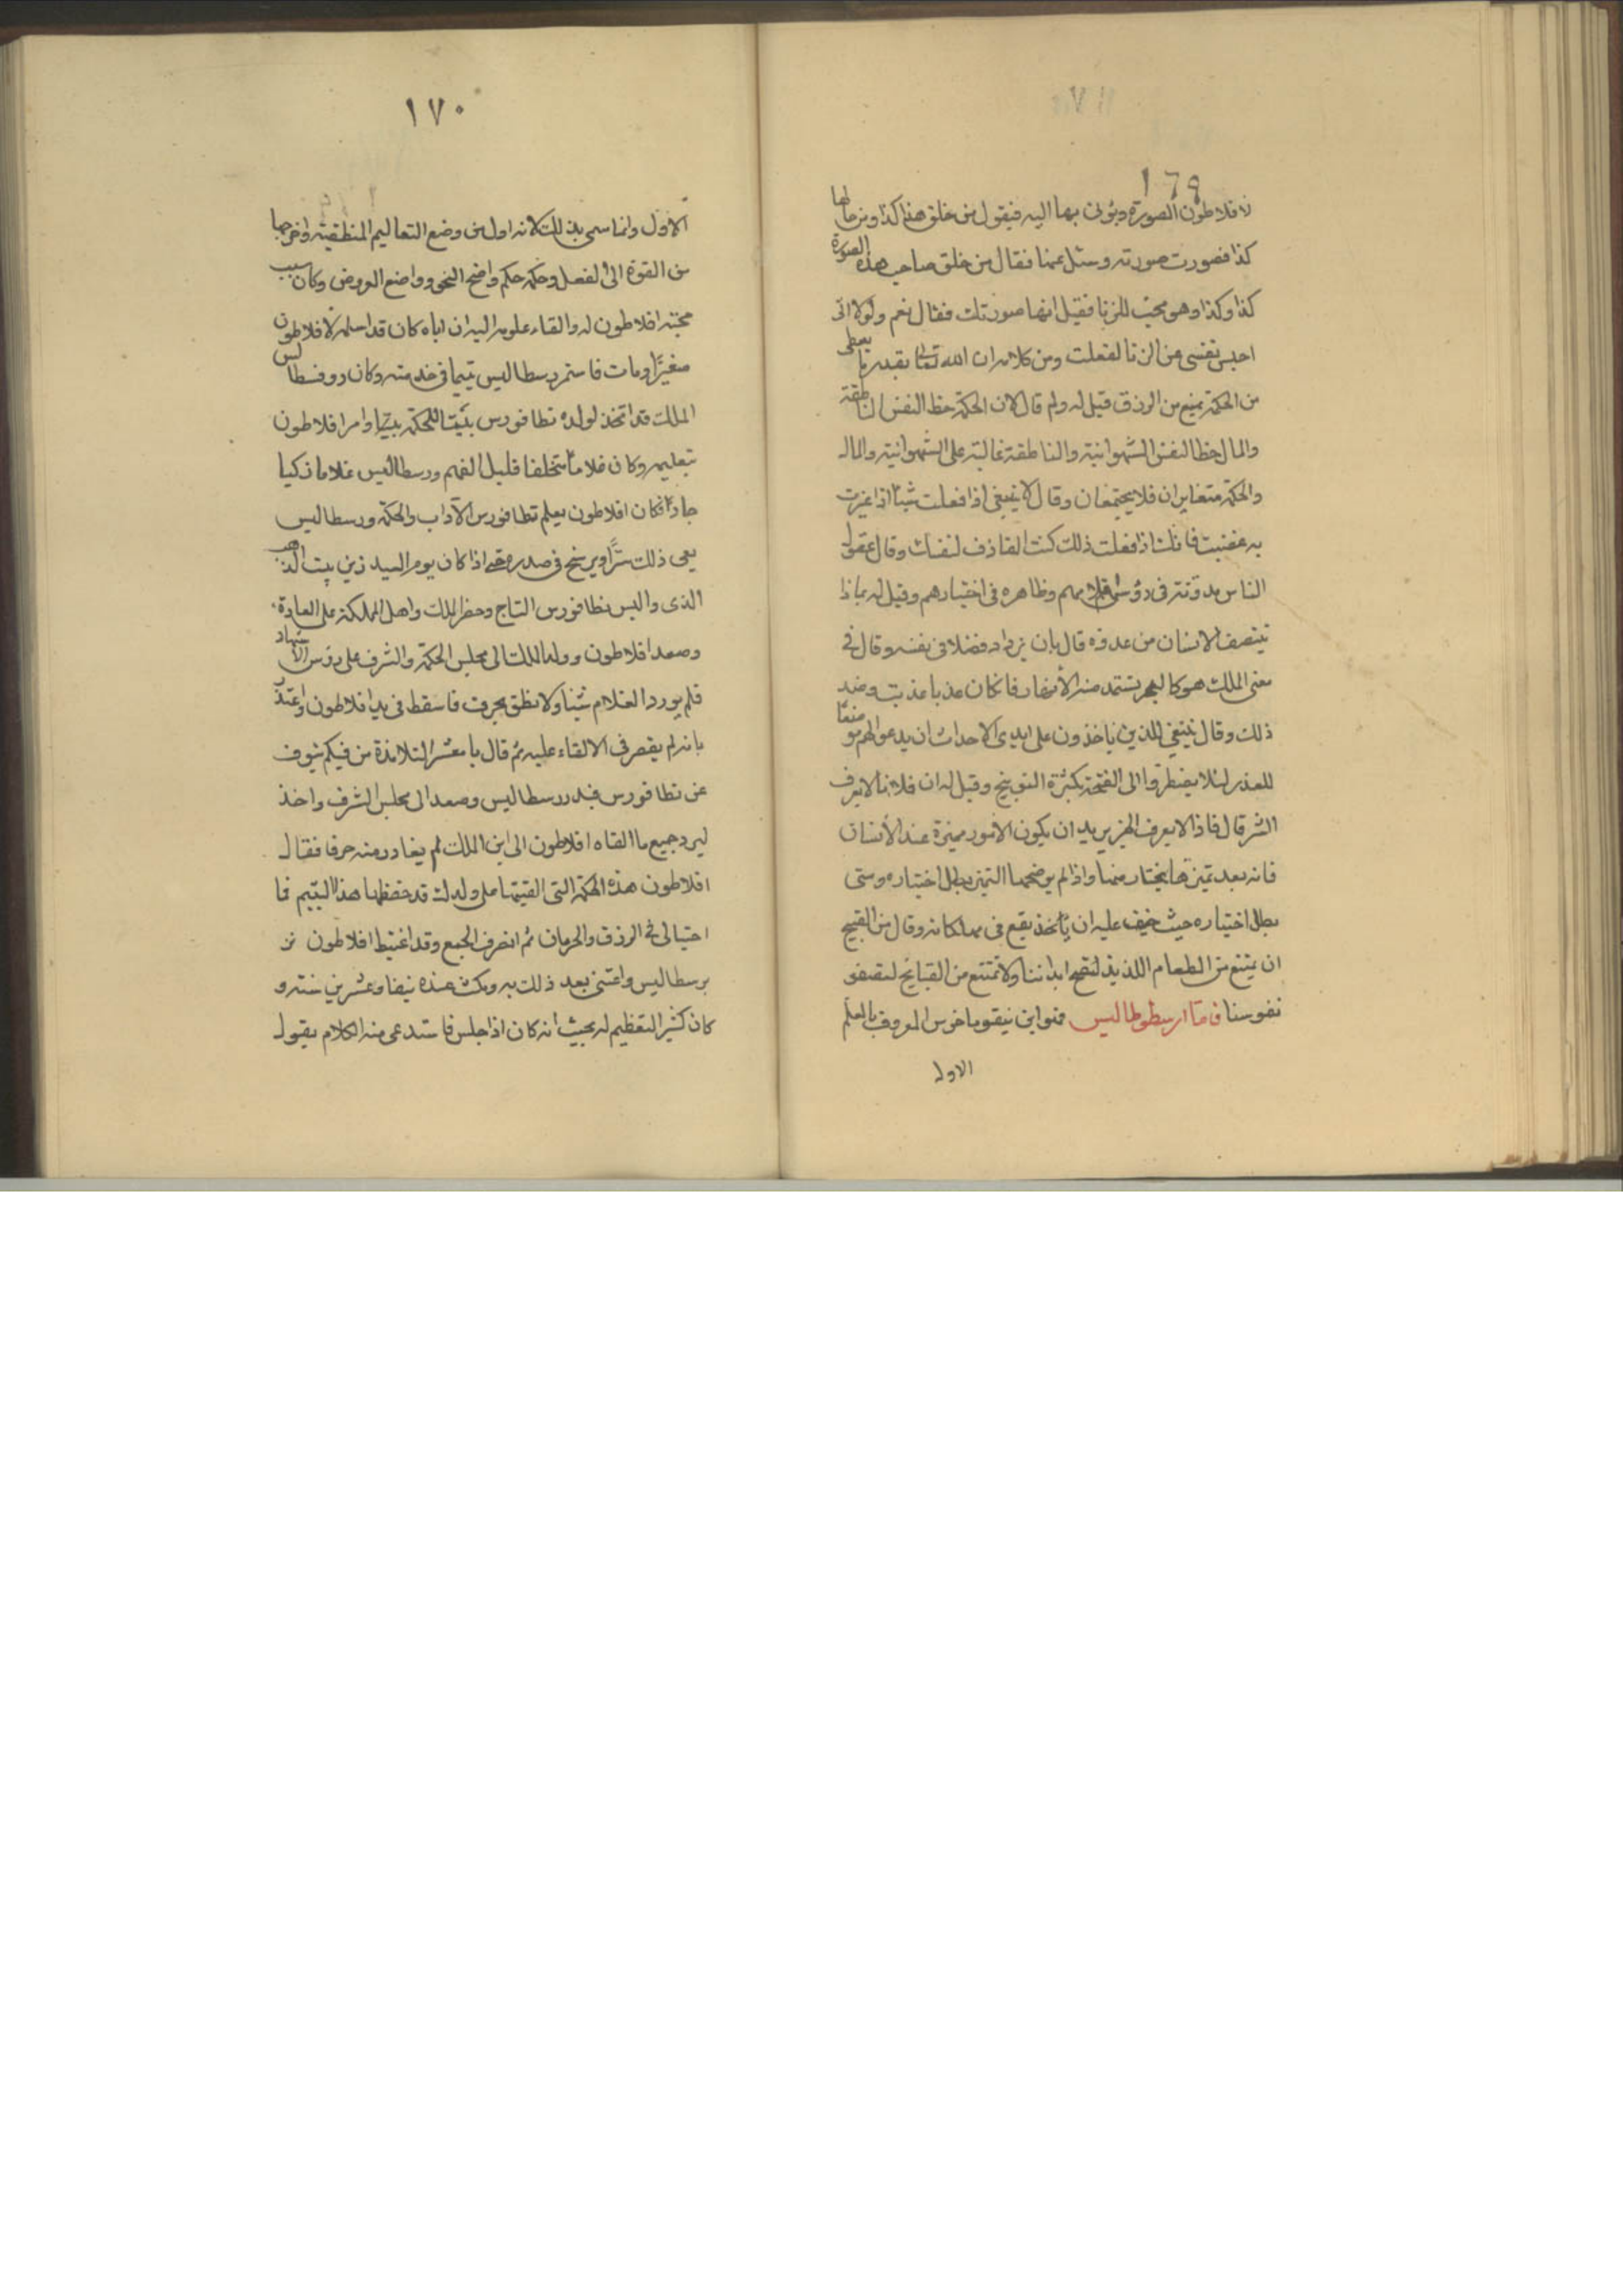 ١٦٩
لافلاطون الصورة ويؤتى بها اليه فيقول من خلق هذا كذا ومن حالها
كذا فصورت صورته وسئل عنها فقال من خلق صاحب هذه الصورة
كذا وكذا وهو محب للزنا فقيل انها صورتك فقال نعم ولولا انى
احبس نفسى عن الزنا لفعلت ومن كلامه ان الله تعالى بقدر ما يعطى
من الحكمة يمنع من الرزق قيل له ولم قال لان الحكمة حظ النفس الناطقة
والمال حظ النفس الشهوانية والناطقة غالبة على الشهوانية والمال
والحكمة متغايران فلا يجتمعان وقال لا ينبغى اذا فعلت شيئا اذا عيرت
به غضبت فانك اذا فعلت ذلك كنت القاذف لنفسك وقال عقول
الناس مدونة فى رؤس اقلامهم وظاهره فى اختيارهم وقيل له بماذا
ينتصف الانسان من عدوه قال بان يزداد فضلا فى نفسه وقال فى
معنى الملك هو كالبحر يستمد منه الأنهار فان كان عذبا عذبت وضد
ذلك وقال ينبغى للذين ياخذون على ايدى الاحداث ان يدعوا لهم موضعا
للعذر لئلا يضطروا الى القحة بكثرة التوبيخ وقيل له ان فلانا لا يعرف
الشر قال فاذا لا يعرف الخير يريد ان يكون الأمور مميزة عند الأنسان
فانه بعد تميزها يختار منها واذا لم يوضحها التميز بطل اختياره ومتى
بطل اختياره حيث خيف عليه ان يأخذ يقع فى مهلكاته وقال من القبيح
ان يمتنع من الطعام اللذيذ لتصح ابداننا ولا نمتنع من القبايح لتصفو
نفوسنا فاما ارسطوطاليس فهو ابن نيقوماخوس المعروف بالمعلم
الاول
١٧٠
الأول وانما سمى بذلك لانه اول من وضع التعاليم المنطقية واخرجها
من القوة الى الفعل وحكمه حكم واضح النحو وواضع العروض وكان سبب
محبته افلاطون له والقاء علومه اليه ان اباه كان قد اسلمه لافلاطون
صغيرًا ومات فاستمر رسطاليس يتيما فى خدمته وكان دوفسطاليس
الملك قد اتخذ لولده نطافورس بيتا للحكمة وامر افلاطون
بتعليمه وكان غلاما متخلفا قليل الفهم ورسطاليس غلاما ذكيا
جادا فكان افلاطون يعلم نطافورس الآداب والحكمة ورسطاليس
يعى ذلك سرًا ويرسخ فى صدره حتى اذا كان يوم العيد زين بيت الذهب
الذى والبس نطافورس التاج وحضر الملك واهل المملكة على العادة
وصعد افلاطون وولد الملك الى مجلس الحكمة والشرف على رؤس الأشهاد
فلم يورد الغلام شيئا ولا نطق بحرف فاسقط فى يد افلاطون واعتذر
بانه لم يقصر فى الالقاء عليه ثم قال يا معشر التلامذة من فيكم ينوب
عن نطافورس فبدر رسطاليس وصعد الى مجلس الشرف واخذ
ليرد جميع ما القاه افلاطون الى ابن الملك لم يغادر منه حرفا فقال
افلاطون هذه الحكمة التى القيتها على ولدك قد حفظها هذا اليتيم فما
احتيالى فى الرزق والحرمان ثم انصرف الجمع وقد اغتبط افلاطون
برسطاليس واعتنى بعد ذلك به ومكث عنده نيفا وعشرين سنة و
كان كثير التعظيم له بحيث أنه كان اذا جلس فاستدعى منه الكلام يقول